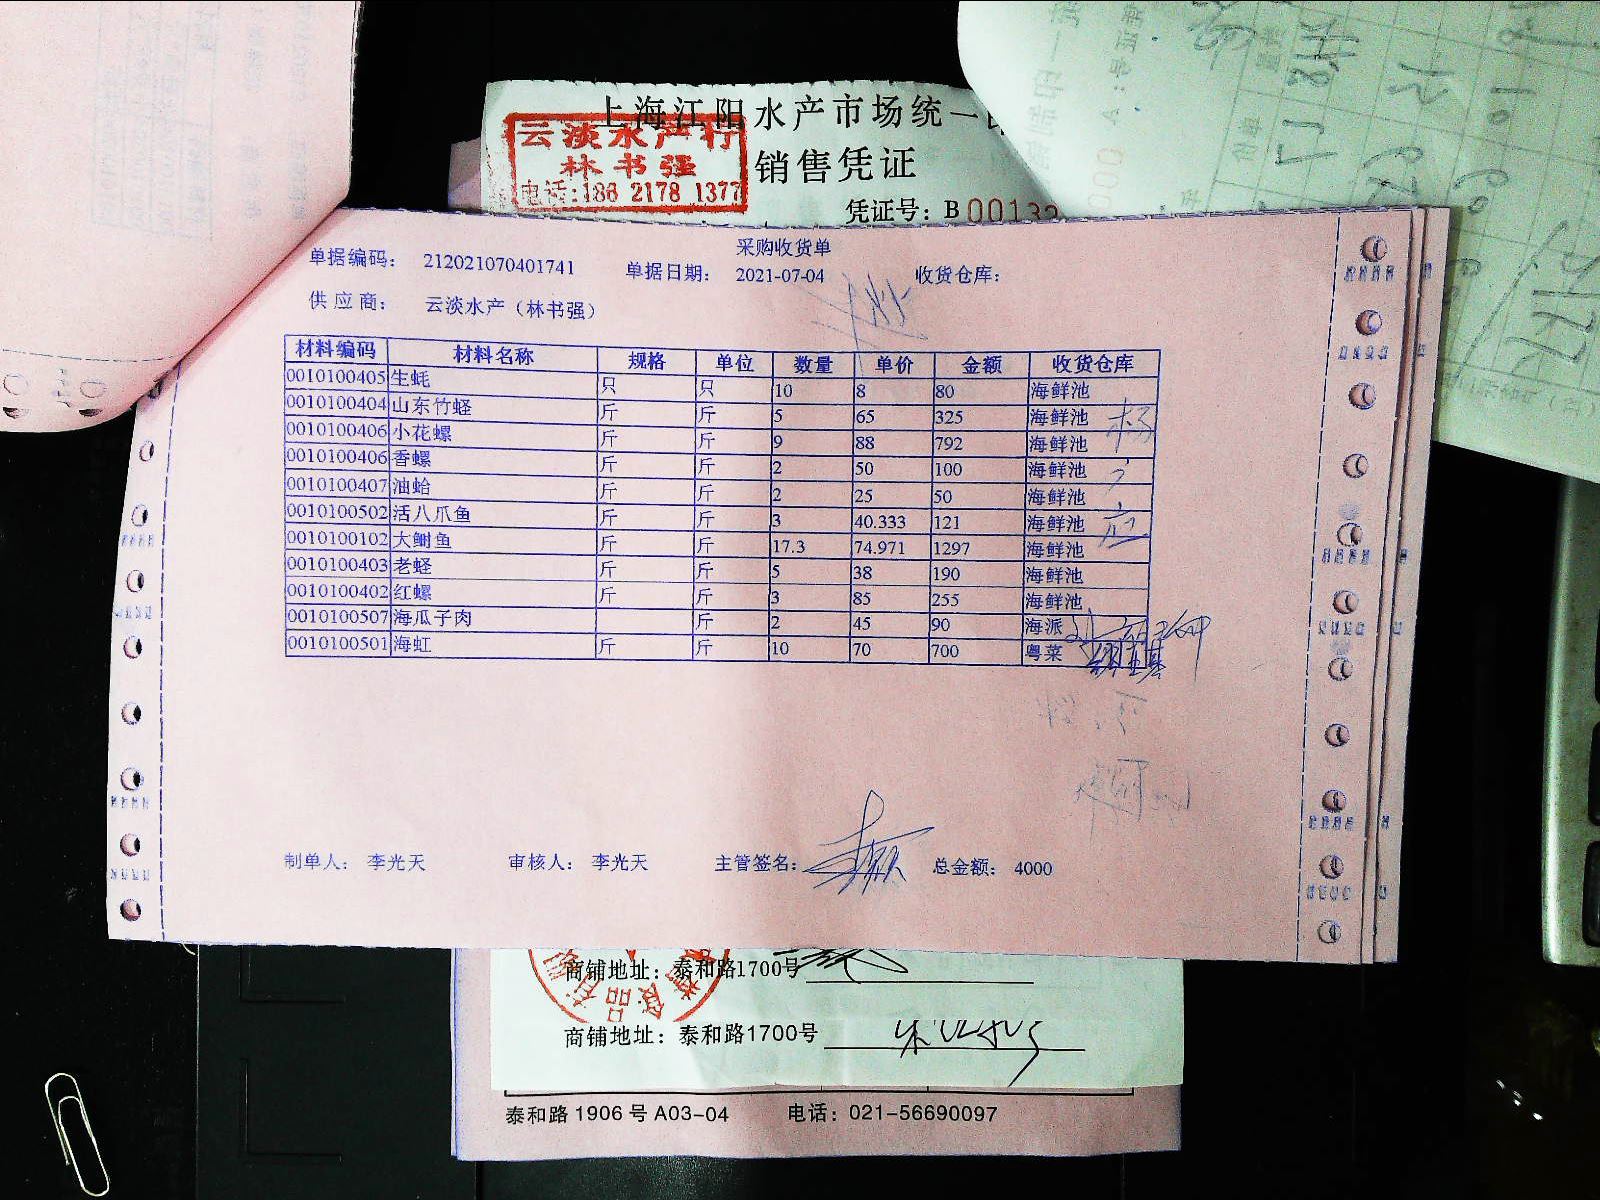 上海江阳水产市场统一
云淡水产行
林书强
电话:186 2178 1377
销售凭证
凭证号: B 00132
采购收货单
单据编码: 212021070401741 单据日期: 2021-07-04 收货仓库:
供应商: 云淡水产（林书强）
材料编码 材料名称 规格 单位 数量 单价 金额 收货仓库
0010100405 生蚝 只 只 10 8 80 海鲜池
0010100404 山东竹蛏 斤 斤 5 65 325 海鲜池
0010100406 小花螺 斤 斤 9 88 792 海鲜池
0010100406 香螺 斤 斤 2 50 100 海鲜池
0010100407 油蛤 斤 斤 2 25 50 海鲜池
0010100502 活八爪鱼 斤 斤 3 40.333 121 海鲜池
0010100102 大鲥鱼 斤 斤 17.3 74.971 1297 海鲜池
0010100403 老蛏 斤 斤 5 38 190 海鲜池
0010100402 红螺 斤 斤 3 85 255 海鲜池
0010100507 海瓜子肉 斤 2 45 90 海派
0010100501 海虹 斤 斤 10 70 700 粤菜
制单人: 李光天 审核人: 李光天 主管签名: 总金额: 4000
商铺地址: 泰和路1700号
商铺地址: 泰和路1700号
泰和路 1906 号 A03-04 电话: 021-56690097